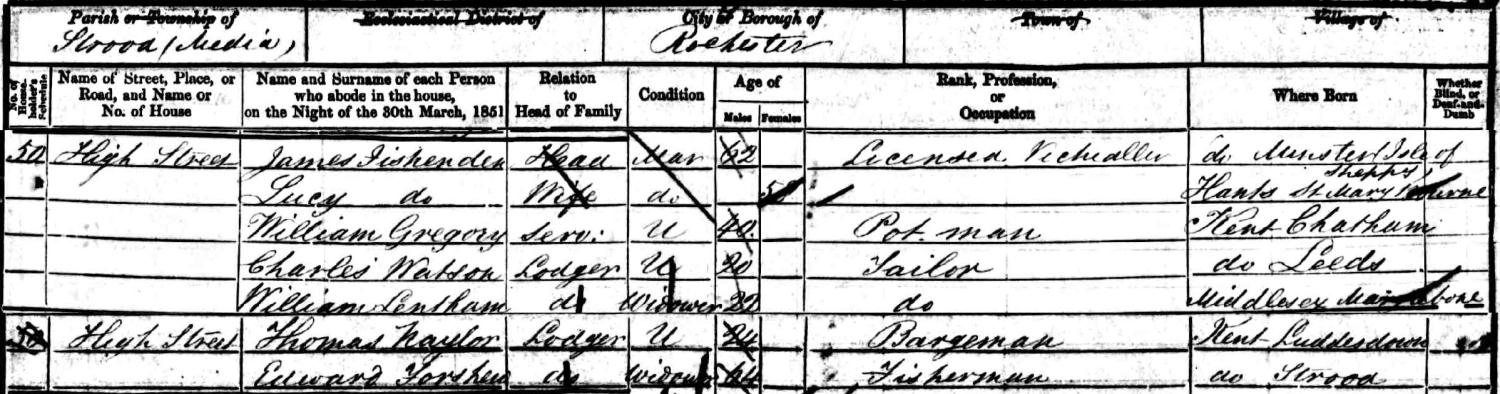 Parish or Township of Ecclesiastical District of City or Borough of Town of Village of
Strood (Media) Rochester
No. of House-holder's Schedule Name of Street, Place, or Road, and Name or No. of House Name and Surname of each Person who abode in the house, on the Night of the 30th March, 1851 Relation to Head of Family Condition Age of Males Females Rank, Profession, or Occupation Where Born Whether Blind, or Deaf-and-Dumb
50 High Street James Fishenden Head Mar 62 Licensed Victualler do Minster Isle of Sheppy
Lucy do Wife do 58 Hants St Mary Bourne
William Gregory Serv: U 40 Pot man Kent Chatham
Charles Watson Lodger U 20 Tailor do Leeds
William Lentham do Widower 22 do Middlesex Marylebone
50 High Street Thomas Naylor Lodger U 24 Bargeman Kent Luddesdown
Edward do Widower 64 Fisherman do Strood